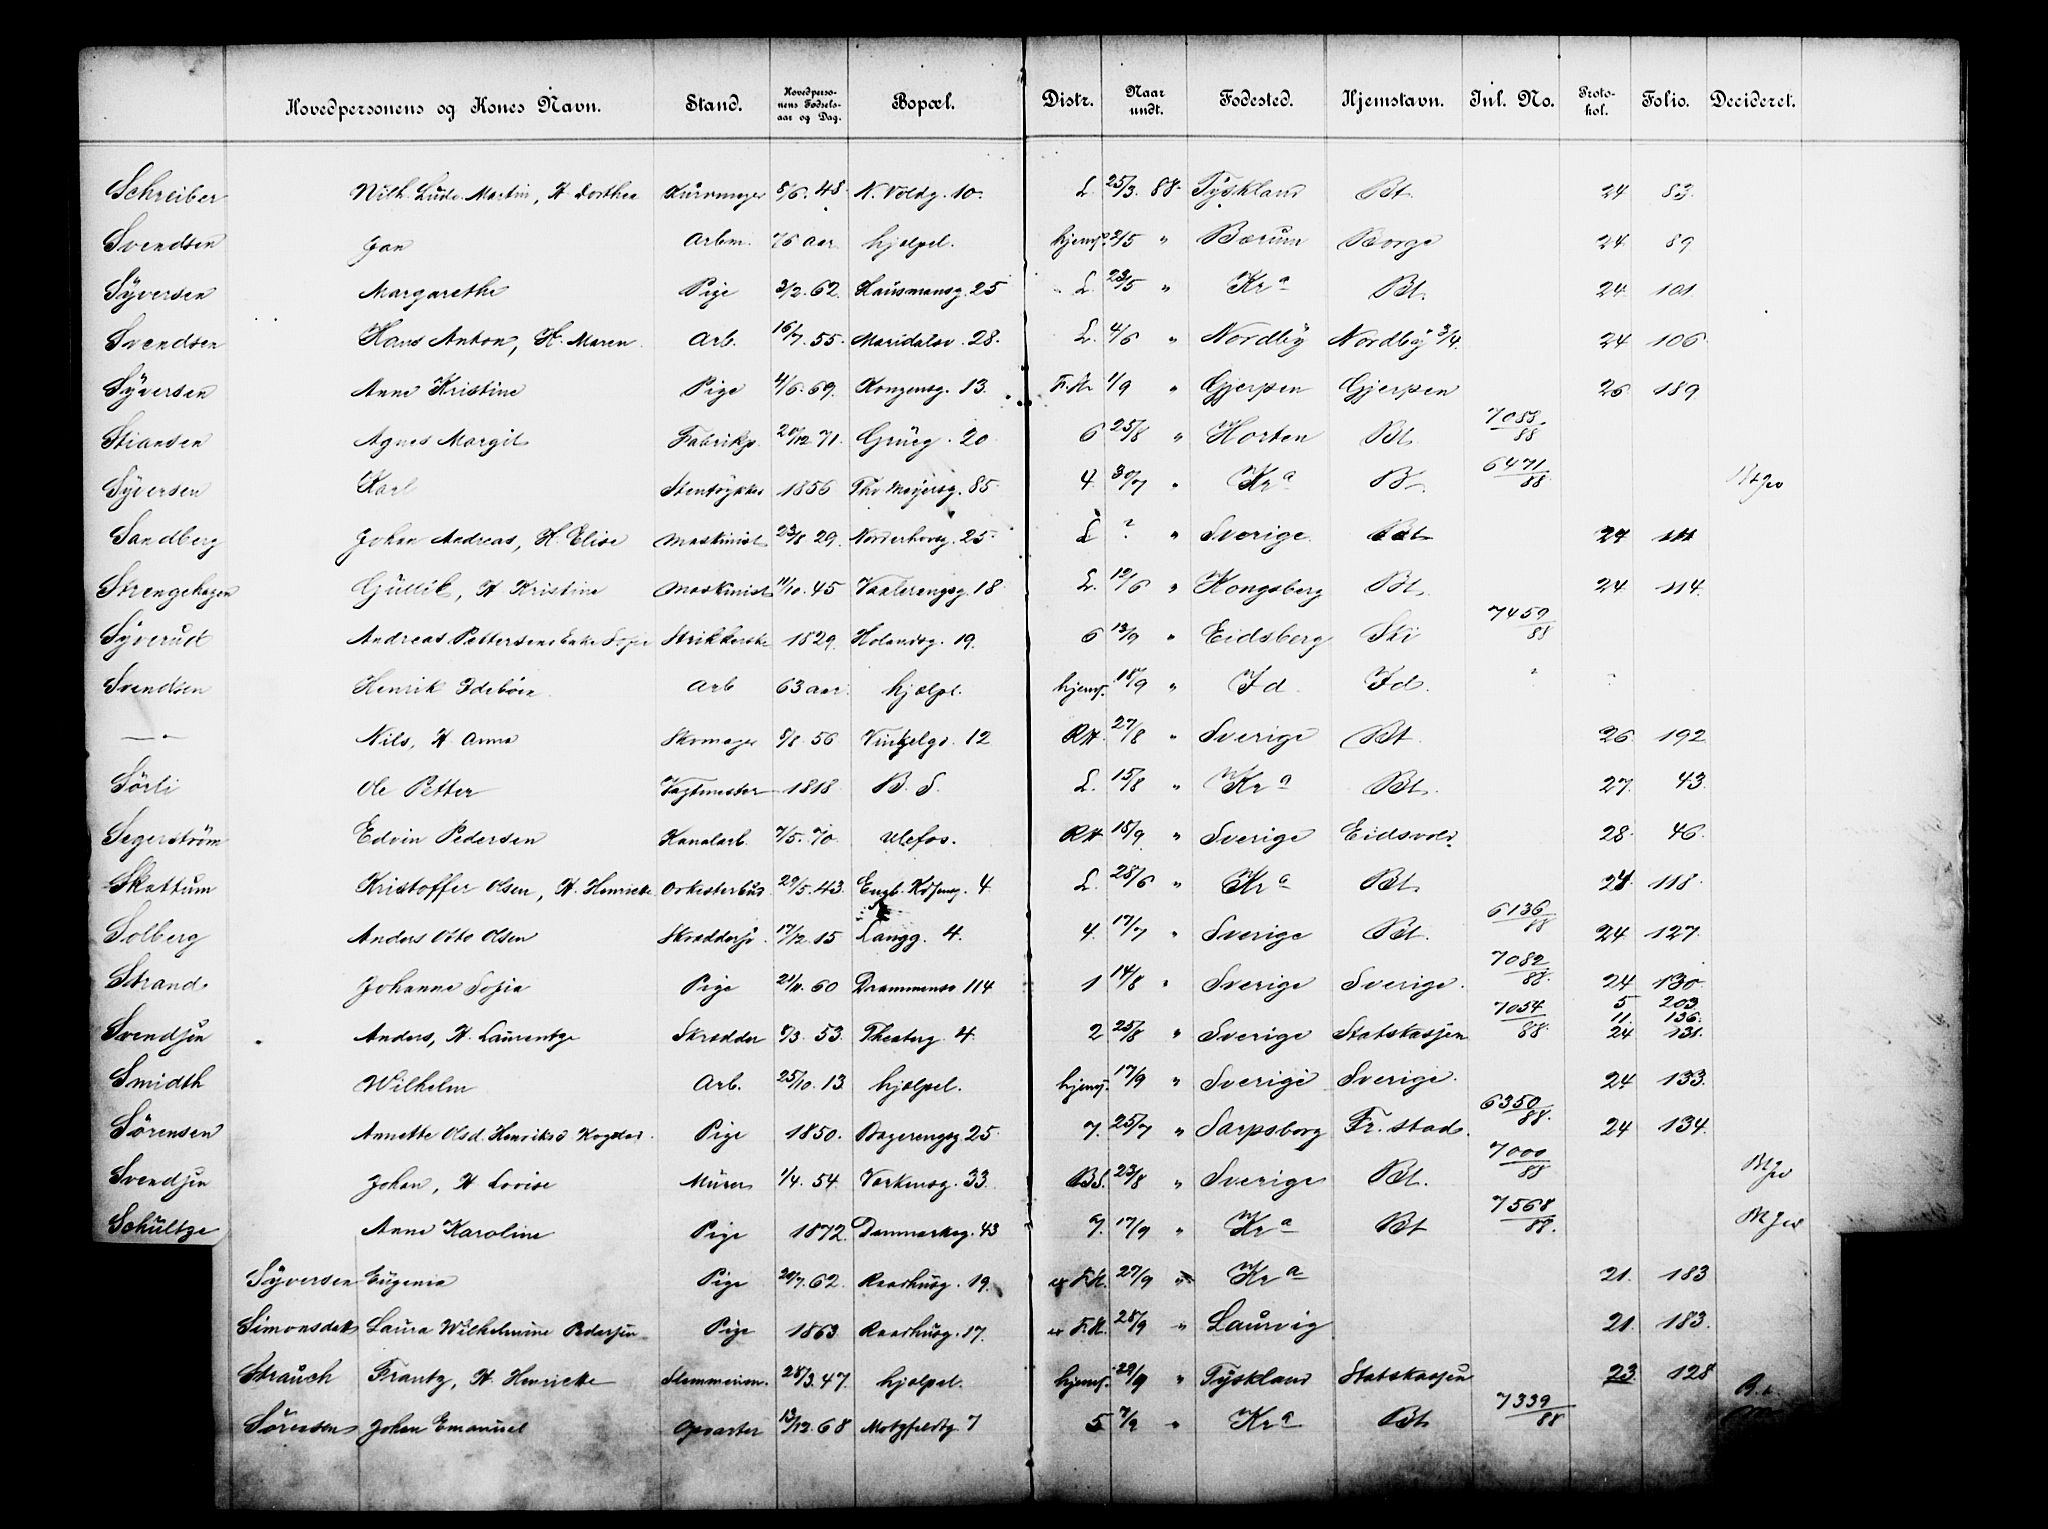 Hovedpersonens og Kones Navn. Stand. Hovedpersonens Fødselsaar og Dag. Bopæl. Distr. Naar undt. Fødested. Hjemstavn. Inl. No. Protokol. Folio. Decideret.
Schreiber Vilh. Ludv. Martin, H. Dorthea Kurvmager 5/6. 48. N. Voldg. 10. L. 25/3. 88. Tyskland Bt. 24 83.
Svendsen Jan Arbm. 76 aar. hjælpel. hjemf. 2/5 " Bærum Borge 24 89
Syversen Margarethe Pige 3/2. 62. Hausmansg. 25 L. 23/5 " Kra Bt. 24. 101.
Svendsen Hans Anton, H. Maren Arb. 16/7. 55. Maridalsv. 28. L. 4/6 " Nordby Nordby 3/4. 24 106
Syversen Anne Kristine Pige 4/6. 69. Kongensg. 13. F.K. 1/9 " Gjerpen Gjerpen 26. 189.
Stiansen Agnes Margit Fabrikp. 20/12 71. Grüng. 20. 6 25/8 " Horten Bt. 7088/88
Syversen Karl 1856 Thv Meyersg. 85. 4. 30/7 " Kra B. 6471/88
Sandberg Johan Andreas, H. Elise Maskinist 23/8 29. Norderhovsg. 25. L ? " Sverige Bt 24 111
Strengehagen Gullik, H Kristine Maskinist 11/10. 45 Vaalerengsg. 18 L. 12/6 " Kongsberg Bt. 24 114.
Syverud Andreas Pettersens Enke Sofie Strikkerske 1829. Holandsg. 19. 6 13/9 " Eidsberg Ski 7459/88
Svendsen Henrik Idebøen Arb 63 aar. hjælpel. hjemf. 18/9 " Id. Id.
— " — Nils, H. Anna Skomager 5/8. 56 Vinkelgd. 12 RH. 27/8 " Sverige Bt 26. 192
Sørli Ole Petter Vagtmester 1818. B. S. L. 15/8 " Kra Bt. 27. 43.
Segerstrøm Edvin Pedersen Kanalarb. 7/5. 70. Ulefos. RH 15/9 " Sverige Eidsvold. 28. 46.
Skattum Kristoffer Olsen, H. Henriette Orkesterbud 29/5. 43. 4 L. 28/6 " Kra Bt. 24. 118.
Solberg Anders Otto Olsen Skræddersv. 17/12. 15 Langg. 4. 4. 17/7 " Sverige Bt. 6136/88 24 127.
Strand Johanne Sofia Pige 21/11. 60 Drammensv 114 1 14/8 " Sverige Sverige. 7082/88. 24 130.
Svendsen Anders, H. Laurentze Skrædder 8/3. 53. Theaterg. 4. 2 25/8 " Sverige Statskassen 7054/88. 5 203. 11. 136. 24 131.
Smidth Wilhelm Arb. 25/10. 13. hjælpel. hjemf. 17/9 " Sverige Sverige. 24 133.
Sørensen Annette Olsd. Henriksd Pige 1850. Bøgerengsg. 25. 7. 25/7 " Sarpsborg Fr. stad. 6350/88. 24 134.
Svendsen Johan, H Lovise Murer 1/4. 54. Værkensg. 33. BS. 23/8 " Sverige Bt. 7000/88
Schultze Anne Karoline Pige 1872. Danmarksg. 43 7. 17/9 " Kra Bt 7568/88.
Syversen Eugenia Pige 20/7. 62. Raadhusg. 19. F.K. 27/9 " Kra 21. 183
Simonsdatt Laura Wilhelmine Pedersen Pige 1863. Raadhusg. 17. F.K. 28/9 " Laurvig 21. 183.
Strauch Frantz, H. Henriette Stemmerien. 28/3. 47. hjælpel. hjemf. 29/9 " Tyskland Statskassen 23. 128
Sørensen Johan Emanuel Opvarter 13/12. 68 Motzfeldtg. 7 5 7/9 " Kra Bt 7339/88